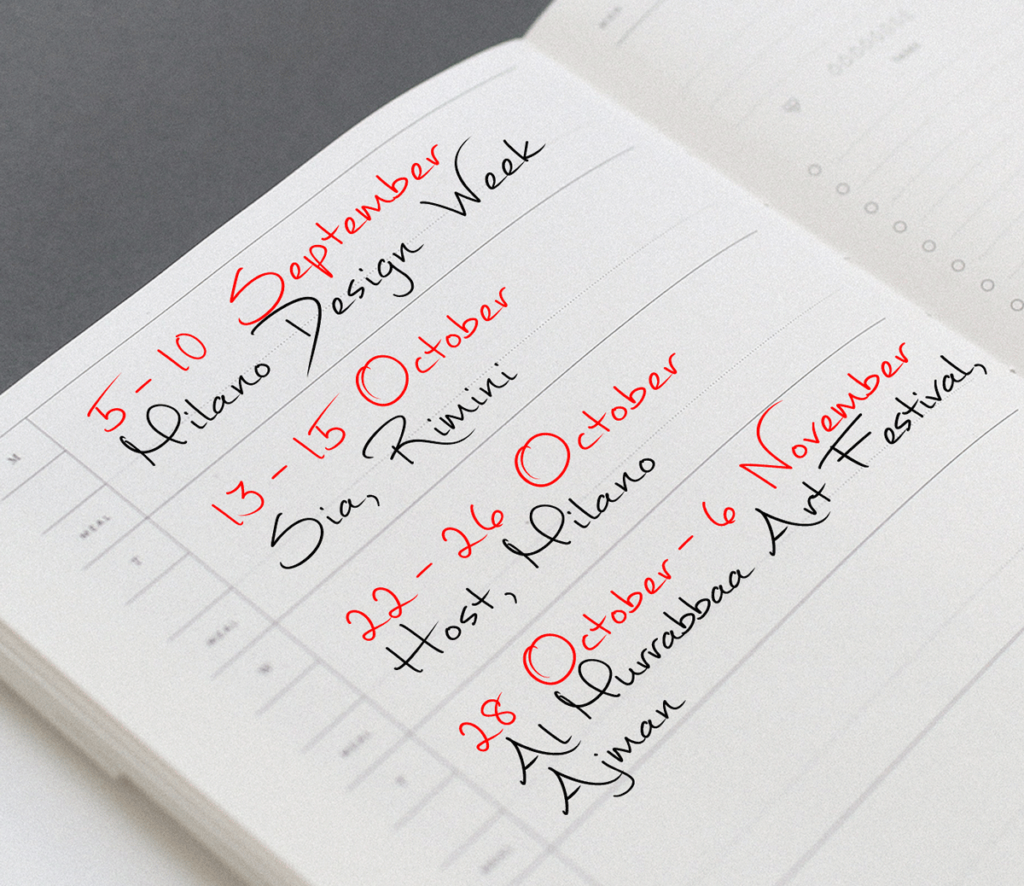 5 - 10 September
Milano Design Week
13 - 15 October
Sia, Rimini
22 - 26 October
Host, Milano
28 October - 6 November
Al Murrabbaa Art Festival,
Ajman
M
MEAL
T
MEAL
MEAL